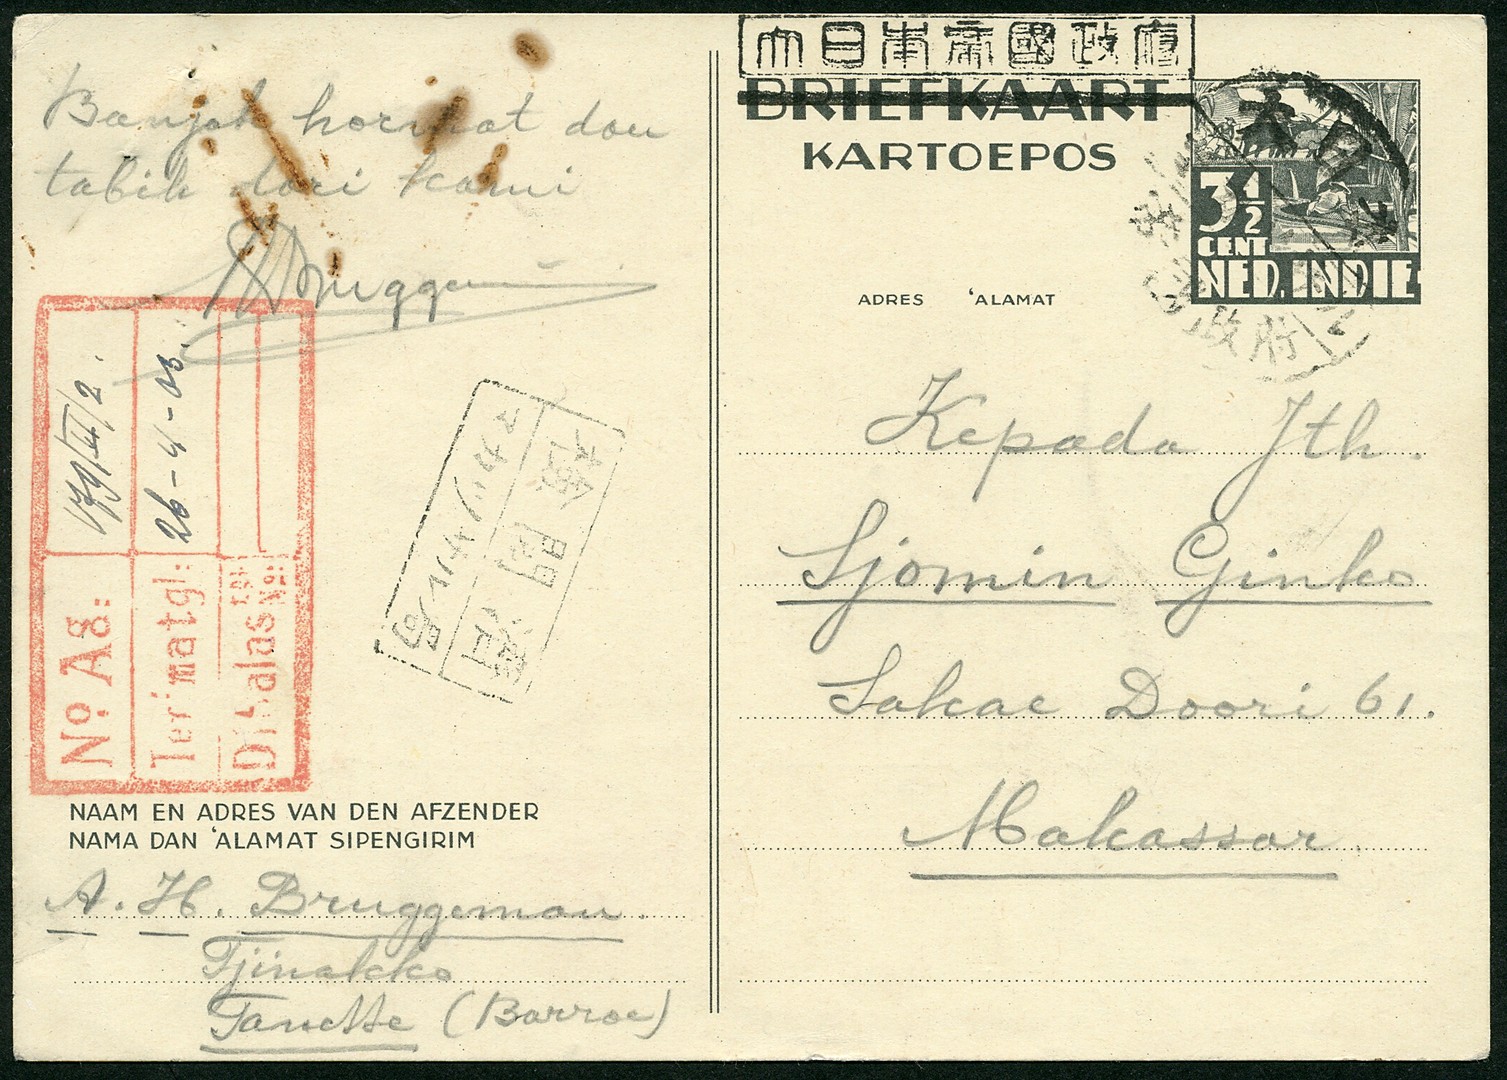 Banjak hormat dan
tabik dari kami
Bruggeman
No. Ag:
179/II/2.
Terimatgl:
26-4-03.
Dibalas tgl:
No:
検閲済
NAAM EN ADRES VAN DEN AFZENDER
NAMA DAN 'ALAMAT SIPENGIRIM
A. H. Bruggeman.
Tjinakko
Tanette (Barroe)
大日本帝國政府
BRIEFKAART
KARTOEPOS
3½
CENT
NED. INDIE
大日本
政府
ADRES 'ALAMAT
Kepada Jth.
Sjomin Ginko
Sakae Doori 61.
Makassar